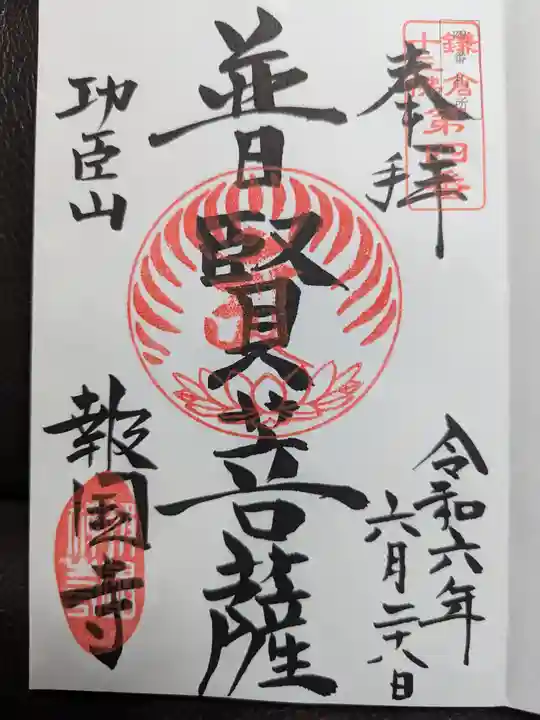 鎌倉
十三佛第四番
奉拝
令和六年
六月二十八日
普賢菩薩
功臣山
報国寺